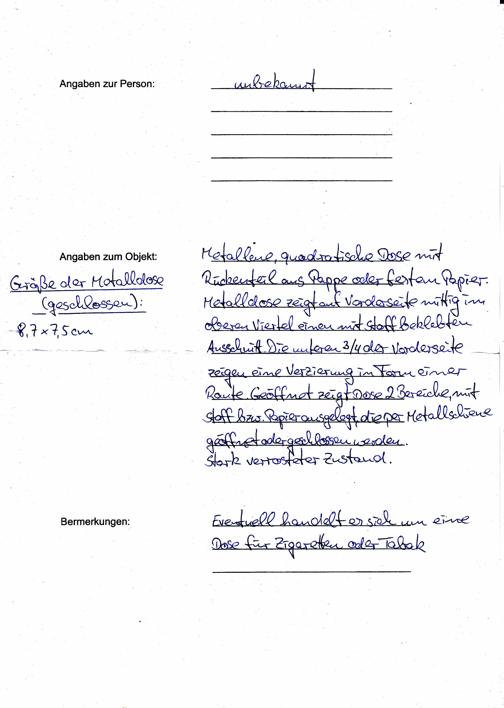 Angaben zur Person:
unbekannt
Angaben zum Objekt:
Größe der Metalldose
(geschlossen):
8,7 x 7,5 cm
Metallene, quadratische Dose mit
Rückenteil aus Pappe oder festem Papier.
Metalldose zeigt auf Vorderseite mittig im
oberen Viertel einen mit Stoff beklebten
Ausschnitt. Die unteren 3/4 der Vorderseite
zeigen eine Verzierung in Form einer
Raute. Geöffnet zeigt Dose 2 Bereiche, mit
Stoff bzw. Papier ausgelegt, die per Metallschiene
geöffnet oder geschlossen werden.
Stark verrosteter Zustand.
Bermerkungen:
Eventuell handelt er sich um eine
Dose für Zigaretten oder Tabak